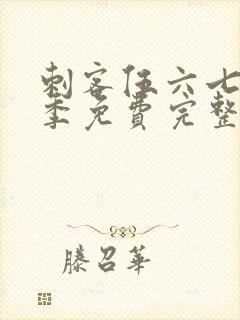 刺客伍六七
季免費完整
滕召華